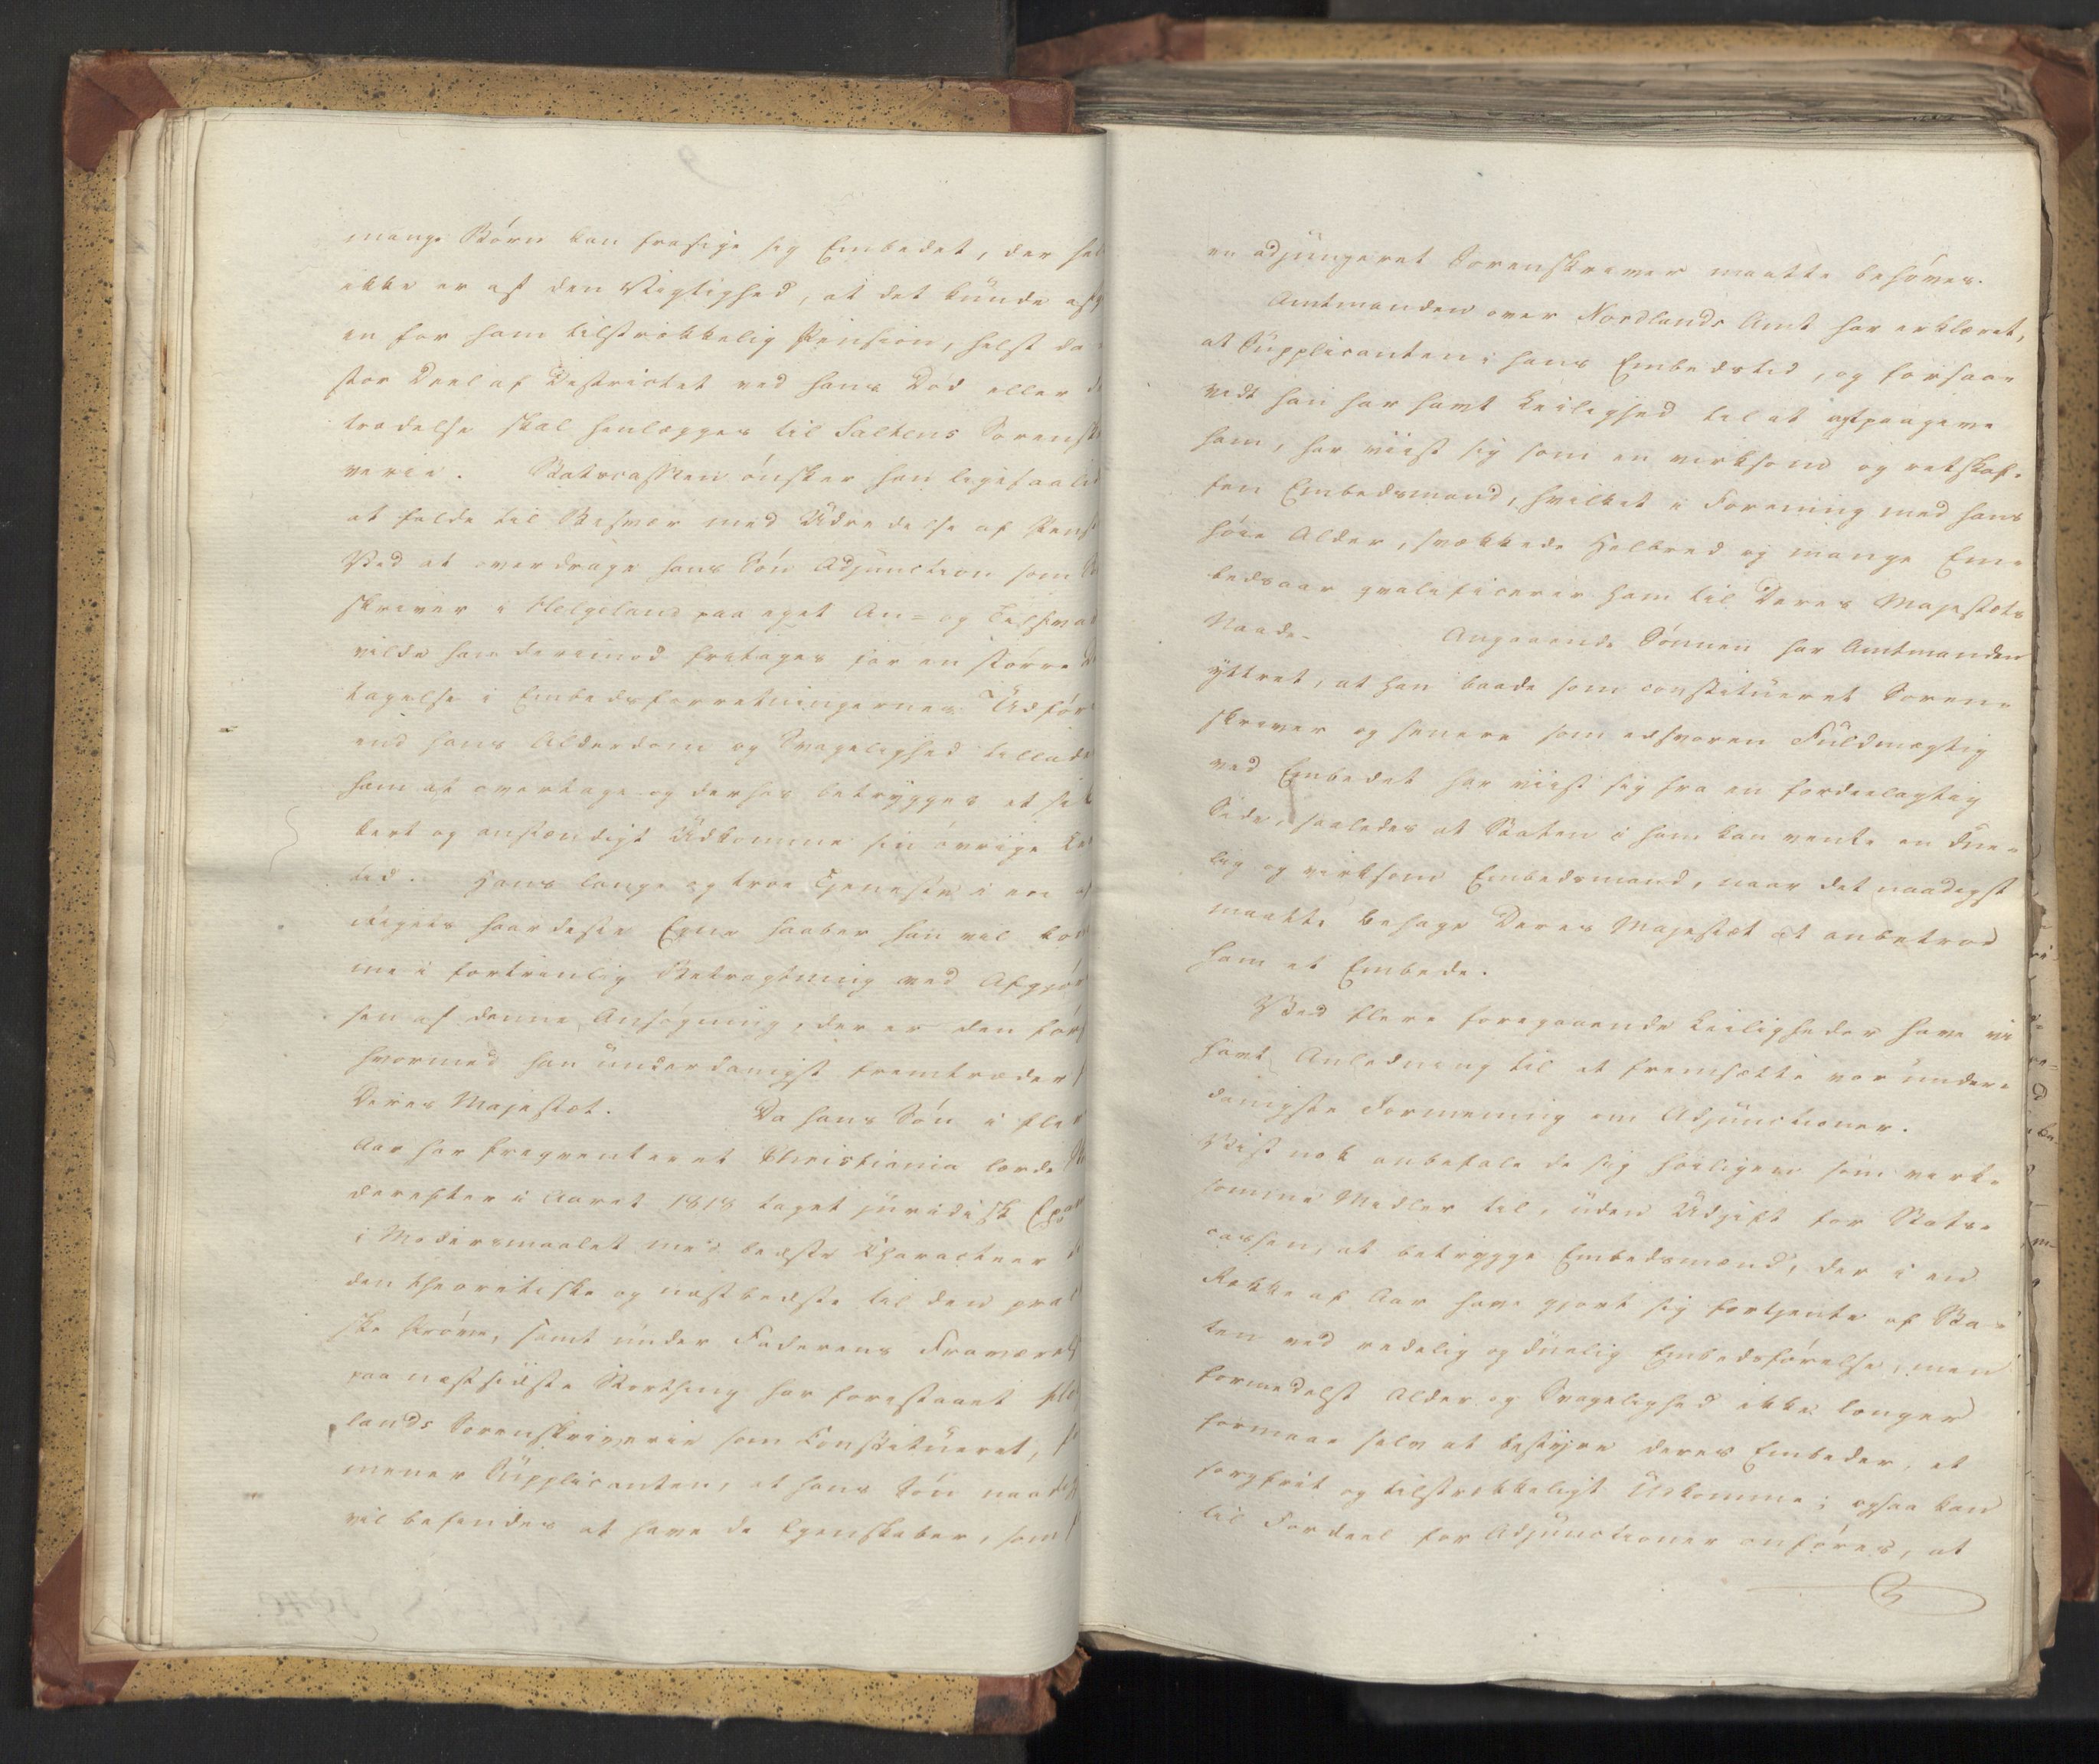 mange Börn kan frasige sig Embedet, der hel
ikke er af den Vigtighed, at det kunde afg
en for ham tilstrekkelig Pension, helst da
stor Deel af Districtet ved hans Död eller
trædelse skal henlægges til Saltens Sorensk
verie. Statscassen ønsker han ligesaalid
at falde til Besvær med Udredelse af Pens
Ved at overdrage hans Sön Adjunction som So
skriver i Helgeland paa eget An= og Tilsvar
vilde han derimod fritages for en större De
tagelse i Embedsforretningernes Udför
end hans Alderdom og Svagelighed tillade
ham at overtage og derhos betrygges et sik
kert og anstændigt Udkomme sin övrige Le
tid. Hans lange og troe Tjeneste i en af
Rigets haardeste Egne haaber han vil kom
me i fortrinlig Betragtning ved Afgjör
sen af denne Ansögning, der er den förs
hvormed han underdanigst fremtræder f
Deres Majestæt. Da hans Sön i fle
Aar har freqventeret Christiania lærde
derefter i Aaret 1818 taget juridisk Exam
i Modersmaalet med bedste Characteer
den theoretiske og næstbedste til den prac
ske Pröve, samt under Faderens Fraværel
paa næstsidste Storthing har forestaaet Hel
lands Sorenskriverie som Constitueret, s
mener Supplicanten, at hans Sön naad
vil befindes at have de Egenskaber, som
en adjungeret Sorenskriver maatte behöves.
Amtmanden over Nordlands Amt har erklæret,
at Supplicanten i hans Embedstid, og forsaa=
vidt han har havt Leilighed til at
ham, har viist sig som en virksom og retskaf=
fen Embedsmand, hvilket i Forening med hans
höie Alder, svækkede Helbred og mange Em=
bedsaar qvalificerer ham til Deres Majestæts
Naade. Angaaende Sönnen har Amtmanden
yttret, at han baade som constitueret Soren=
skriver og senere som edsvoren Fuldmægtig
ved Embedet har viist sig fra en fordeelagtig
Side, saaledes at Staten i ham kan vente en due=
lig og virksom Embedsmand, naar det naadigst
maatte behage Deres Majestæt at anbetroe
ham et Embede.
Ved flere foregaaende Leiligheder have vi
havt Anledning til at fremsætte vor under=
danigste Formening om Adjunctioner.
Vist nok anbefale de sig höiligen som virk=
somme Midler til, uden Udgift for Stats=
cassen, at betrygge Embedsmænd, der i en
Række af Aar have gjort sig fortjente af Sta=
ten ved redelig og duelig Embedsförelse, men
formedelst Alder og Svagelighed ikke længer
formaae selv at bestyre deres Embeder, et
sorgfrit og tilstrækkeligt Udkomme; ogsaa kan
til Fordeel for Adjunctioner anföres, at